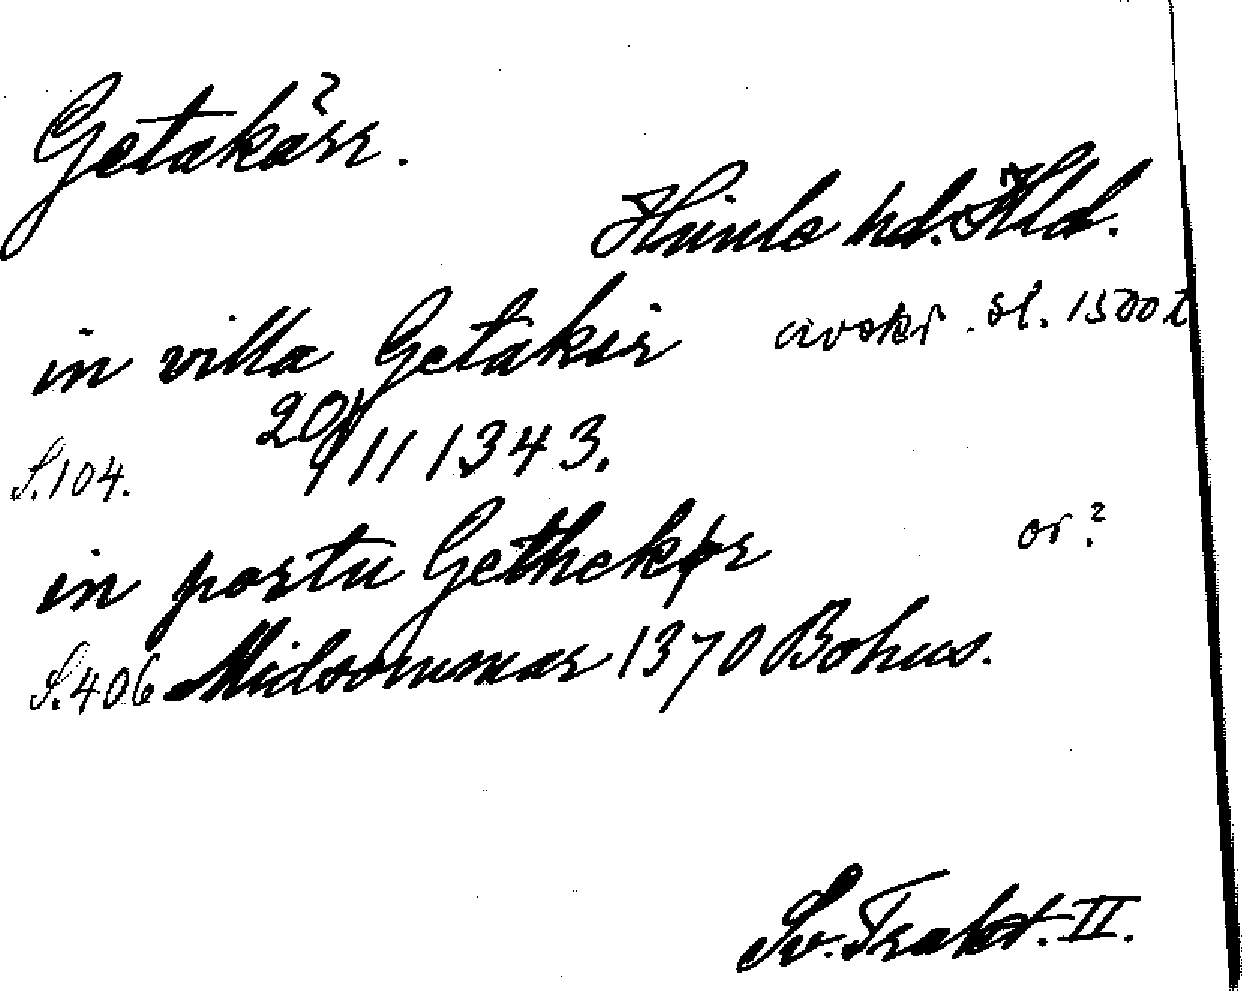 Getakärr. ?
Himle hd. Hld.
in villa Getakir avskr. sl. 1500 t
20/11 1343.
S. 104.
in portu Gethekør or?
S. 406 Midsommar 1370 Bohus.
Sv. Trakt. II.